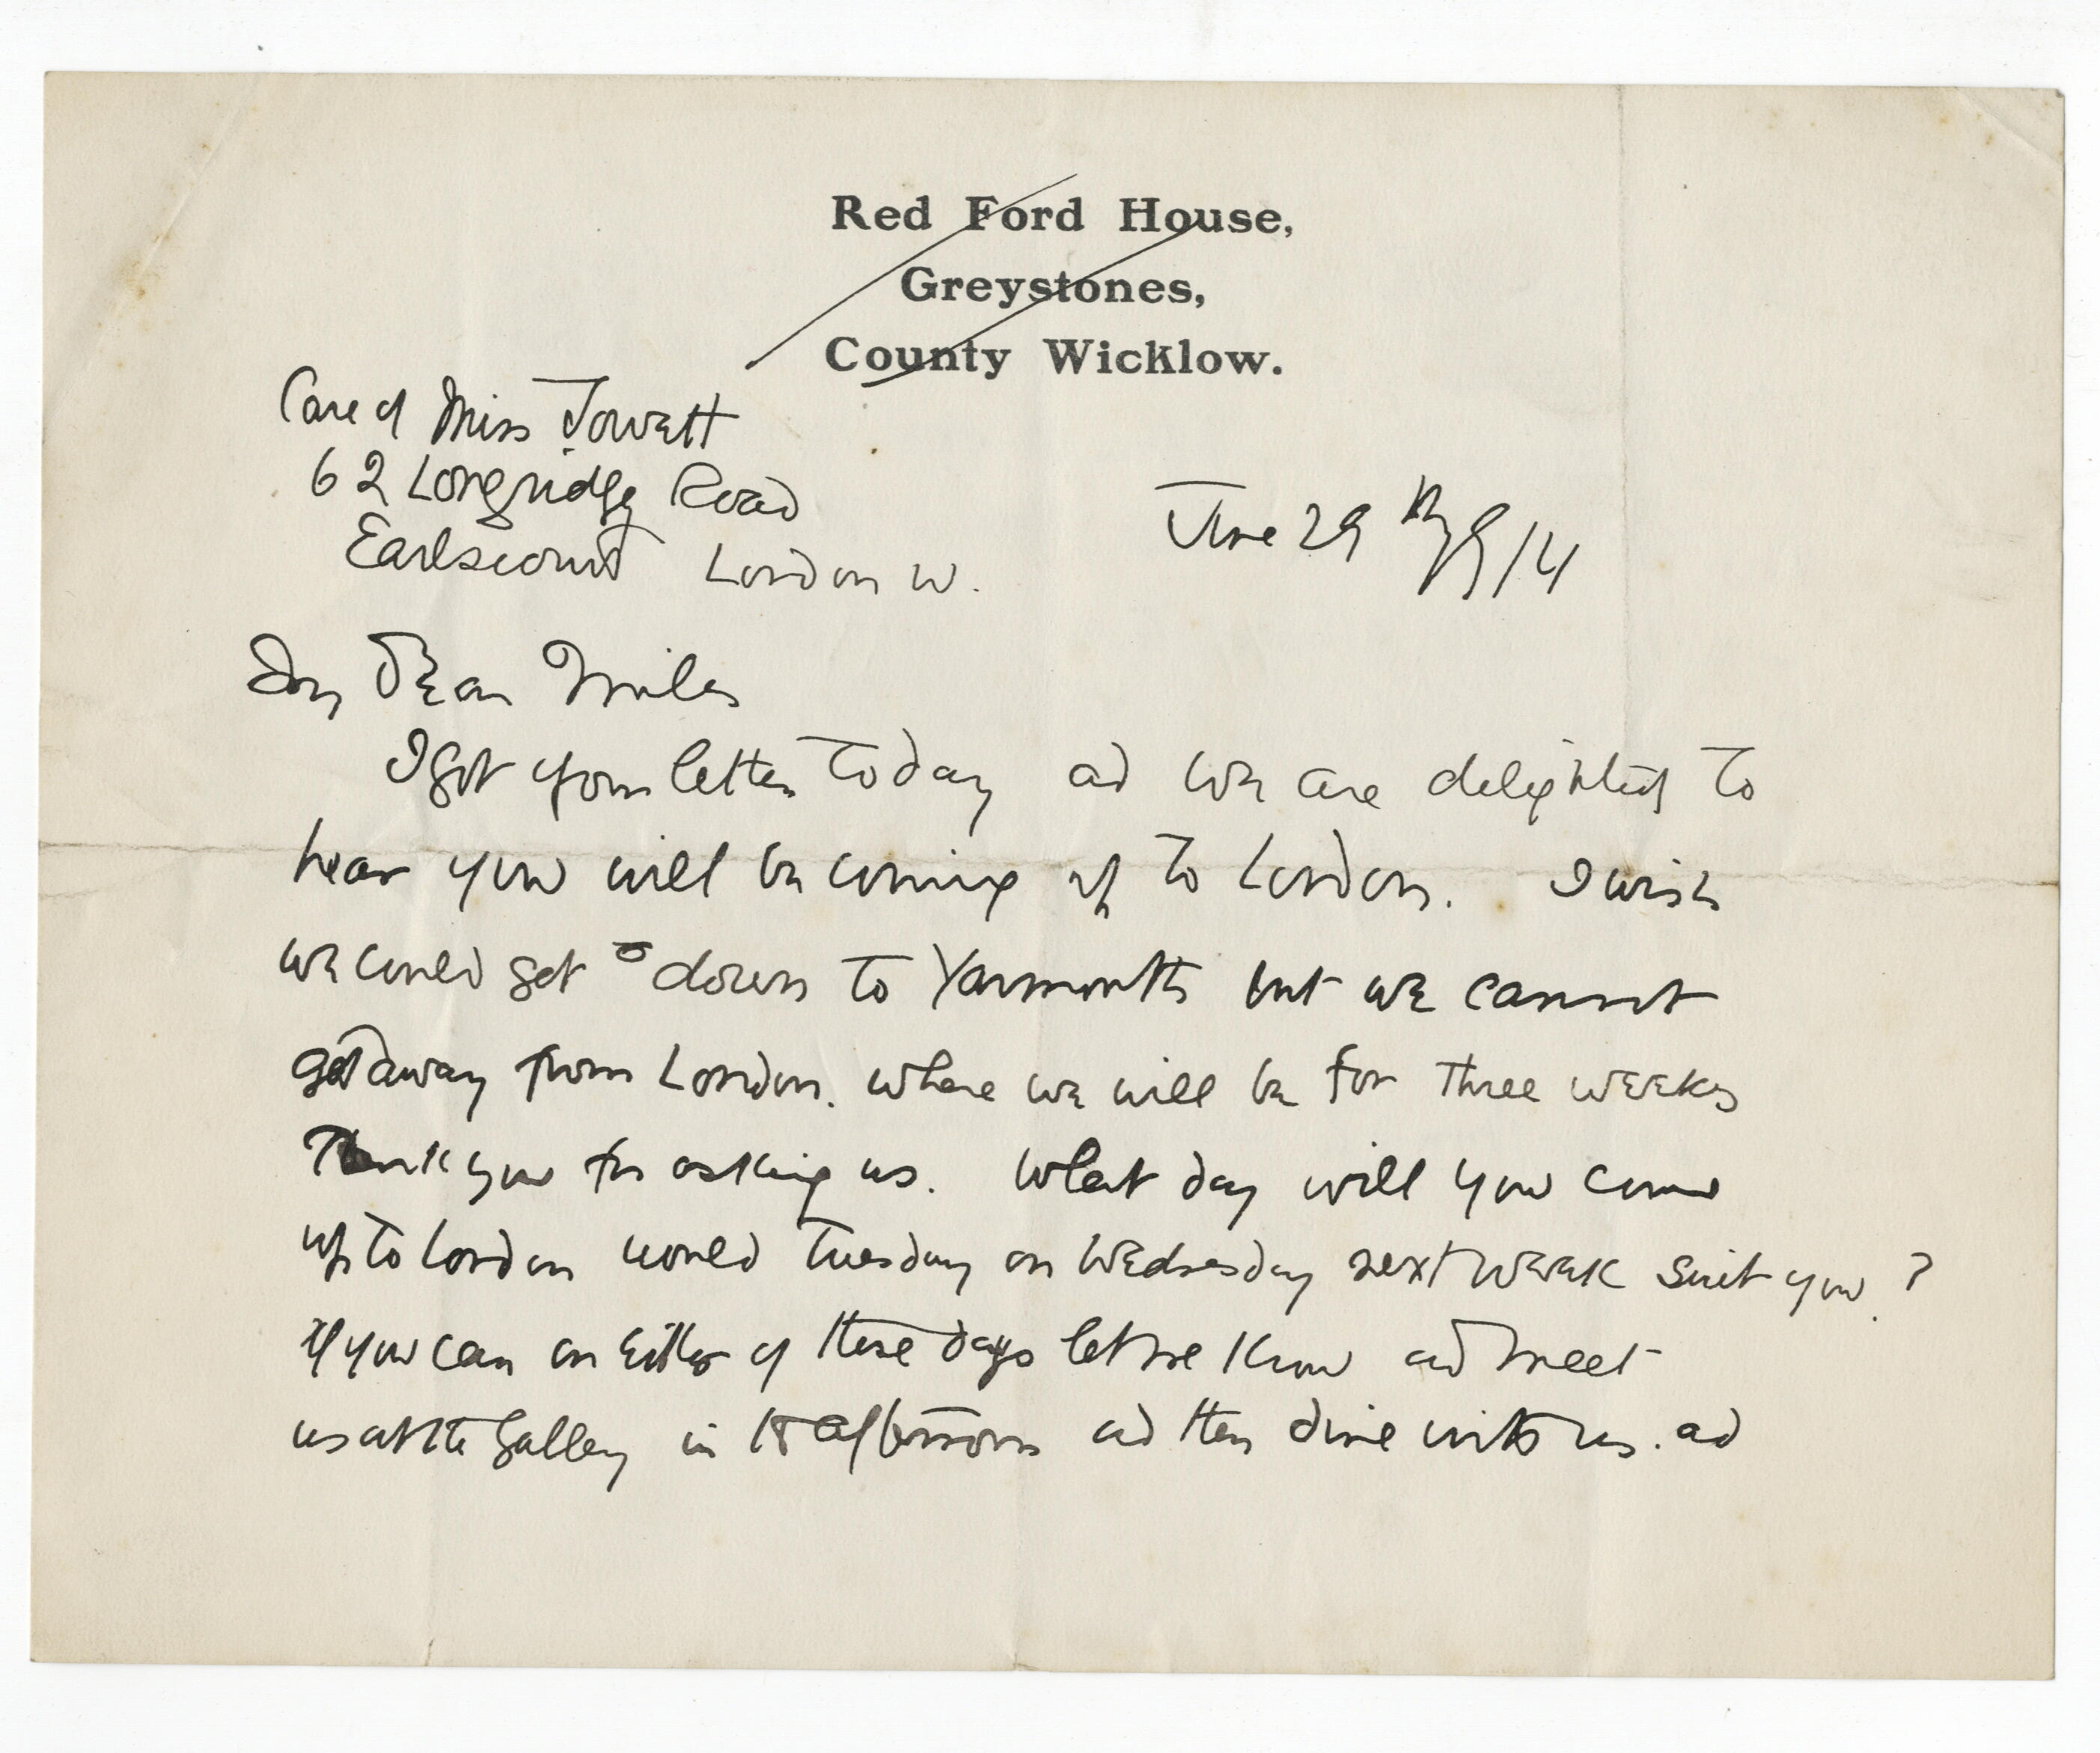 Red Ford House,
Greystones,
County Wicklow.
Care of Miss Jowett
62 Longridge Road
Earlscourt London W.
June 29 1914
My Dear Miles
I got your letter today ad we are delighted to
hear you will be coming up to London. I wish
we could get down to Yarmouth but we cannot
get away from London. where we will be for three weeks
Thank you for asking us. What day will you come
up to London would Tuesday or Wednesday next week suit you?
If you can on either of these days let me know ad meet
us at the Gallery in the afternoon ad then dine with us. ad